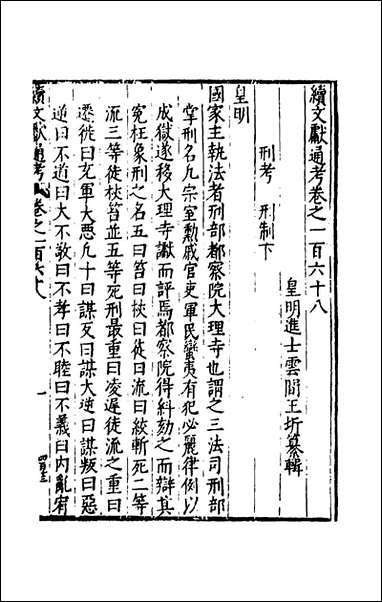 續文獻通考卷之一百六十八
皇明進士雲間王圻纂輯
刑考 刑制下
皇明
國家主執法者刑部都察院大理寺也謂之三法司刑部
掌刑名凡宗室勲戚官吏軍民蠻夷有犯必麗律例以
成獄遂移大理寺讞而評焉都察院得糾劾之而辯其
寃枉象刑之名五曰笞曰杖曰徒曰流曰絞斬死二等
流三等徒杖笞並五等死刑最重曰凌遲徒流之重曰
遷徙曰充軍大惡凡十曰謀反曰謀大逆曰謀叛曰惡
逆曰不道曰大不敬曰不孝曰不睦曰不義曰内亂宥
續文獻通考
卷之一百六十八
一